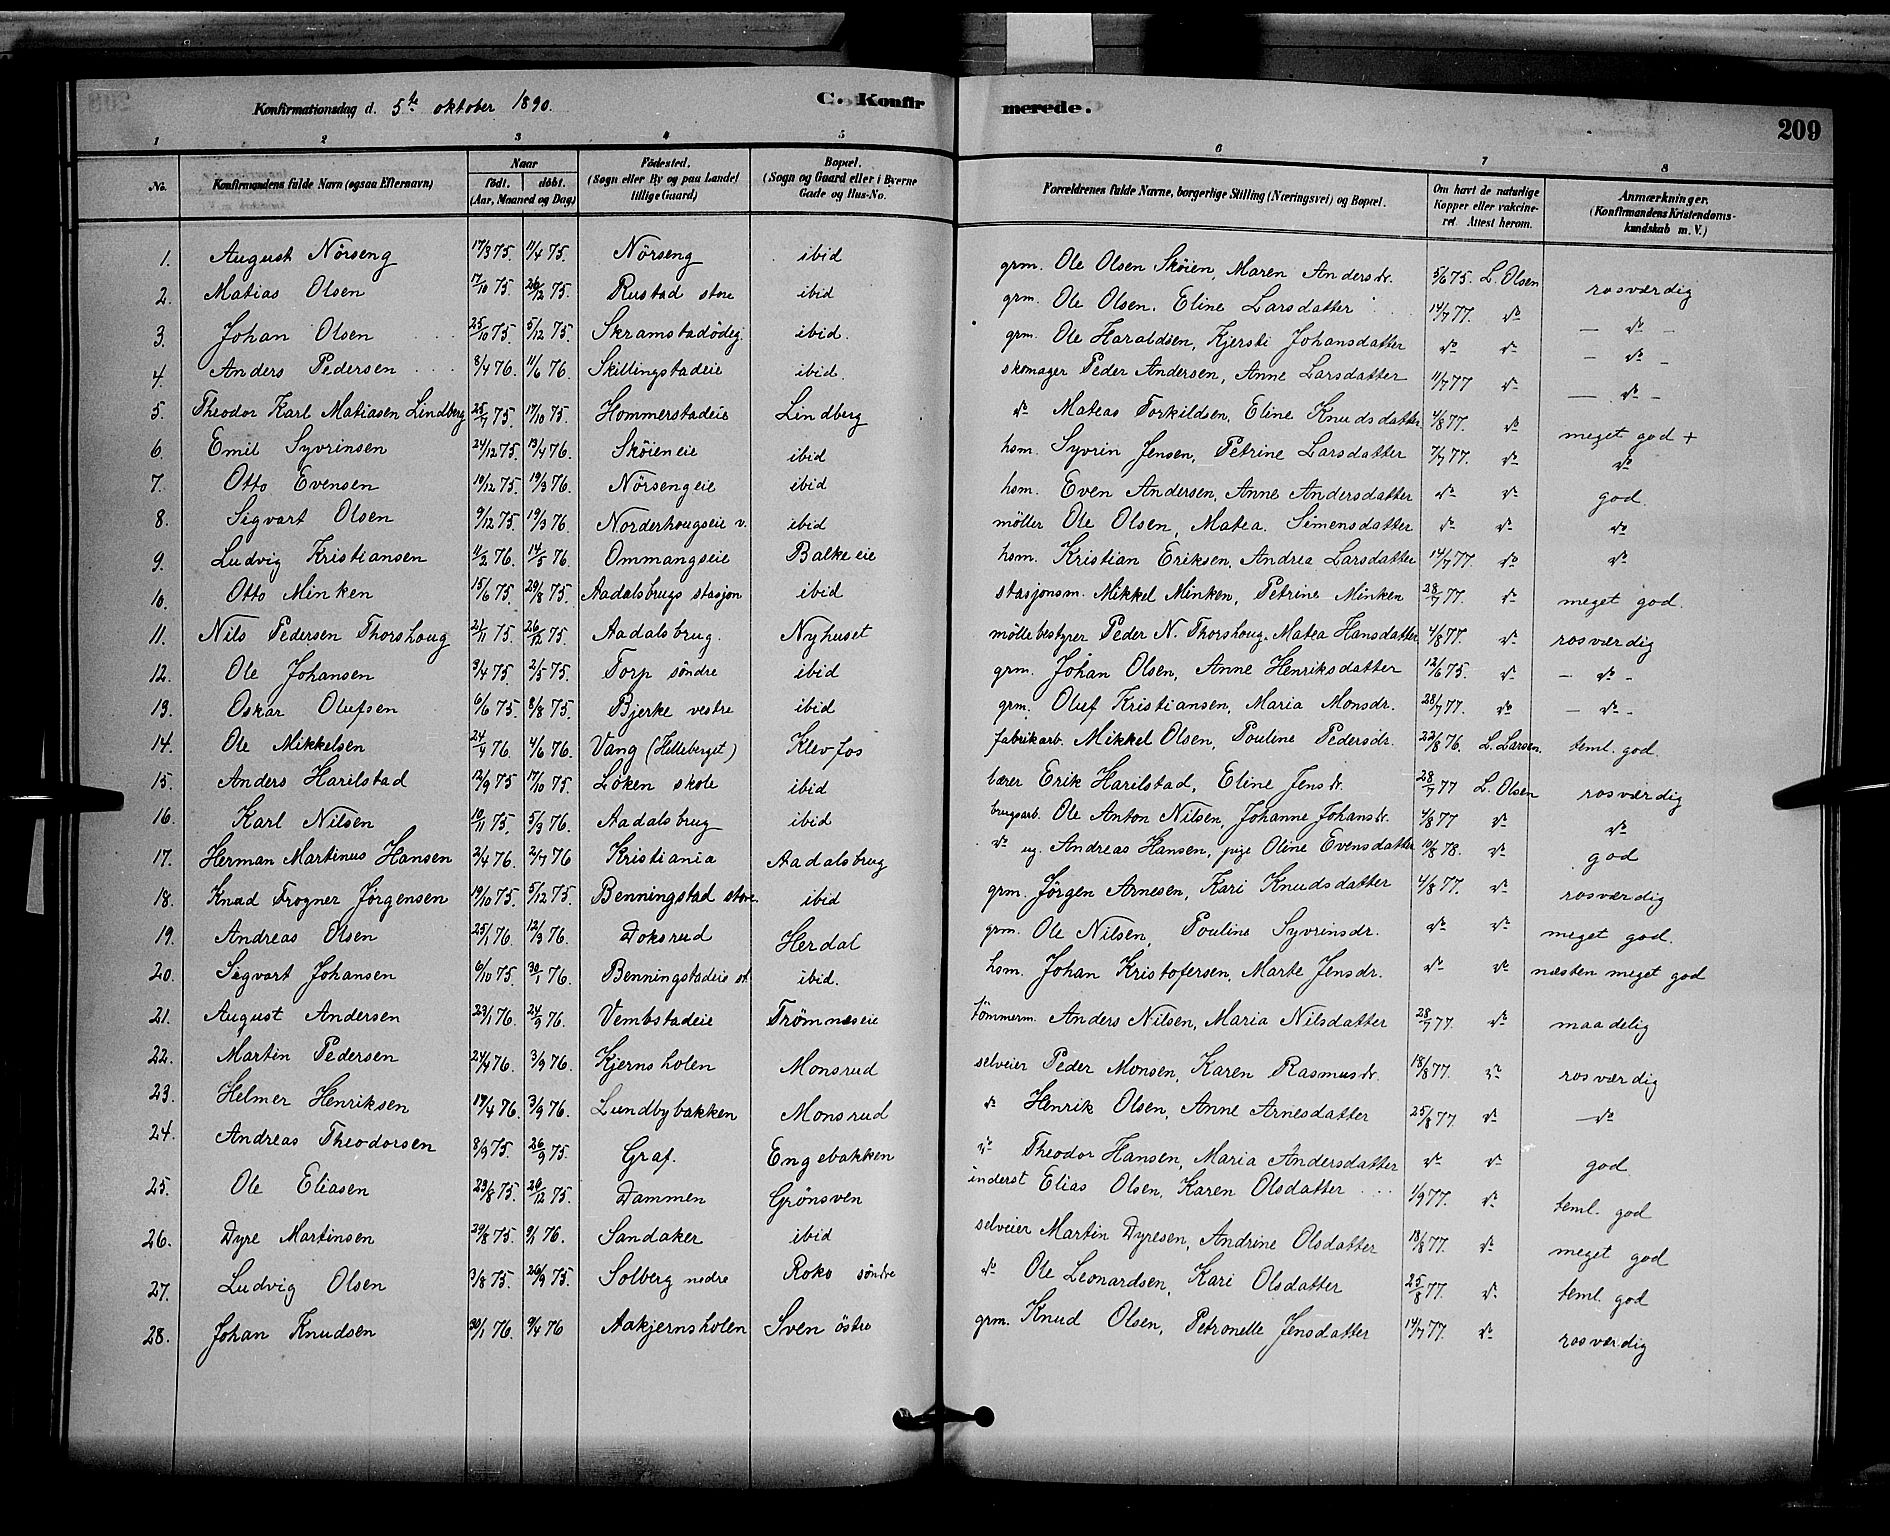 Konfirmationsdag d. 5te oktober 1890.
C. Konfir
merede.
209
1 2 3 4 5 6 7 8
No. Konfirmandens fulde Navn (ogsaa Efternavn) Naar født. døbt. (Aar, Maaned og Dag) Fødested. (Sogn eller By og paa Landet tillige Gaard) Bopæl. (Sogn og Gaard eller i Byerne Gade og Hus-No. Forældrenes fulde Navne, borgerlige Stilling (Næringsvei) og Bopæl. Om havt de naturlige Kopper eller vakcineret. Attest herom. Anmærkninger. (Konfirmandens Kristendomskundskab m. V.)
1. August Nörseng 17/3 75. 11/4 75. Nörseng ibid grm. Ole Olsen Sköien, Maren Andersdr. 5/6 75. L. Olsen rosværdig
2. Matias Olsen 17/10 75. 26/12 75. Rustad store ibid grm. Ole Olsen. Eline Larsdatter 14/7 77. do — do —
3. Johan Olsen 25/10 75. 5/12 75. Skramstadödeg. ibid. grm. Ole Haraldsen, Kjersti Johansdatter do do — do —
4. Anders Pedersen 8/4 76. 11/6 76. Skillingstadeie ibid. skomager Peder Andersen, Anne Larsdatter 11/7 77 do — do —
5. Theodor Karl Matiasen Lindberg 25/7 75. 17/10 75. Hommerstadeie Lindberg do Mateas Torkildsen, Eline Knudsdatter 4/8 77. do meget god +
6. Emil Syvrinsen 24/12 75. 19/4 76. Sköieneie ibid hsm. Syvrin Jensen, Petrine Larsdatter 7/7 77. do do
7. Otto Evensen 10/12 75. 19/3 76. Nörsengeie ibid hsm. Even Andersen, Anne Andersdatter do do god.
8. Sigvart Olsen 9/12 75. 19/3 76. Norderhougseie v. ibid möller Ole Olsen, Matea. Simensdatter do do do
9. Ludvig Kristiansen 11/2 76. 14/5 76. Ommangseie Balkeeie hsm. Kristian Eriksen, Andrea Larsdatter 14/7 77. do do
10. Otto Minken 15/6 75. 29/8 75. Aadalsbrugs stasjon ibid stasjonsm. Mikkel Minken, Petrine Minken 28/7 77. do meget god.
11. Nils Pedersen Thorshoug 21/11 75. 26/12 75. Aadalsbrug. Nyhuset möllebestyrer Peder N. Thorshoug. Matea Hansdatter 4/8 77. do rosværdig
12. Ole Johansen 3/4 75. 2/5 75. Torp söndre ibid grm. Johan Olsen, Anne Henriksdatter 12/6 75. do — do -
13. Oskar Olufsen 6/6 75. 8/8 75. Bjerke vestre ibid grm. Oluf Kristiansen, Maria Monsdr. 28/7 77. do — do -
14. Ole Mikkelsen 24/4 76. 4/6 76. Vang (Helleberget) Klevfos fabrikarb. Mikkel Olsen, Pouline Pedersdr. 22/8 76. L. Larsen. teml. god.
15. Anders Harilstad 12/9 75 17/10 75. Löken skole ibid lærer Erik Harilstad, Eline Jensdr. 28/7 77 L. Olsen rosværdig
16. Karl Nilsen 10/11 75. 5/3 76. Aadalsbrug ibid brugsarb. Ole Anton Nilsen, Johanne Johansdr. 4/8 77 do do
17. Herman Martinus Hansen 2/4 76. 2/7 76 Kristiania Aadalsbrug do ug. Andreas Hansen, pige Oline Evensdatter 10/8 78. do god
18. Knud Frogner Jörgensen 19/10 75. 5/12 75. Benningstad store. ibid grm. Jörgen Arnesen, Kari Knudsdatter 4/8 77. do rosværdig
19. Andreas Olsen 25/1 76. 12/3 76. Doksrud Herdal grm. Ole Nilsen, Pouline Syvrinsdr. do do meget god.
20. Sigvart Johansen 6/10 75. 30/1 76. Benningstadeie st. ibid. hsm. Johan Kristofersen, Marte Jensdr. do do næsten meget god
21. August Andersen 23/1 76. 24/9 76. Vembstadeie Trömnæseie tömmerm. Anders Nilsen, Maria Nilsdatter 28/7 77. do maadelig
22. Martin Pedersen 24/4 76. 3/9 76. Kjernsholen Monsrud selveier Peder Monsen, Karen Rasmusdr. 18/8 77. do rosværdig
23. Helmer Henriksen 19/4 76. 3/9 76. Lundbybakken Monsrud do Henrik Olsen, Anne Arnesdatter 25/8 77. do — do
24. Andreas Theodorsen 8/9 75. 26/9 75. Graf. Engebakken do Theodor Hansen, Maria Andersdatter do do god
25. Ole Eliasen 23/8 75. 26/12 75. Dammen Grönsven inderst Elias Olsen, Karen Olsdatter 1/9 77. do teml. god
26. Dyre Martinsen 29/8 75. 9/1 76. Sandaker ibid selveier Martin Dyresen, Andrine Olsdatter 18/8 77. do meget god
27. Ludvig Olsen 3/8 75. 26/9 75. Solberg nedre Roko söndre do Ole Leonardsen, Kari Olsdatter 25/8 77. do teml. god
28. Johan Knudsen 30/1 76. 9/4 76 Aakjernsholen Sven östre grm. Knud Olsen, Petronelle Jensdatter 14/7 77. do rosværdig